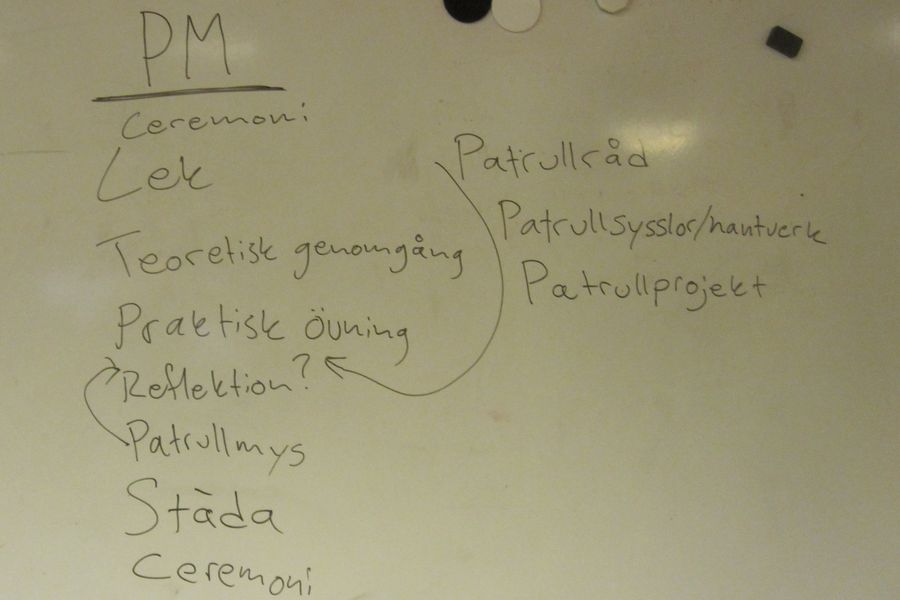 PM
Ceremoni
Lek
Teoretisk genomgång
Praktisk övning
Reflektion?
Patrullmys
Städa
Ceremoni
Patrullråd
Patrullsysslor/hantverk
Patrullprojekt